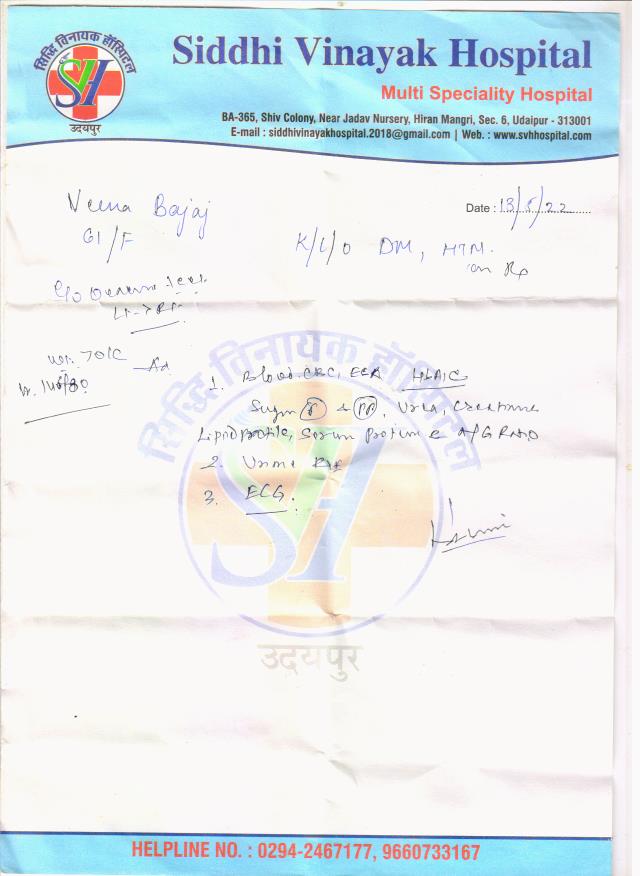 सिद्धि विनायक हॉस्पिटल
SVH
उदयपुर
Siddhi Vinayak Hospital
Multi Speciality Hospital
BA-365, Shiv Colony, Near Jadav Nursery, Hiran Mangri, Sec. 6, Udaipur - 313001
E-mail : siddhivinayakhospital.2018@gmail.com | Web. : www.svhhospital.com
Veena Bajaj
Date : 13/5/22
61/F
K/C/O DM, HTN.
on Rx
Adv
1. Blood. CBC, ESR HbA1C
Sugar F & PP, Urea, Creatinine
Lipid Profile, Serum Protein & A/G Ratio
2. Urine
3. ECG.
सिद्धि विनायक हॉस्पिटल
SVH
उदयपुर
HELPLINE NO. : 0294-2467177, 9660733167